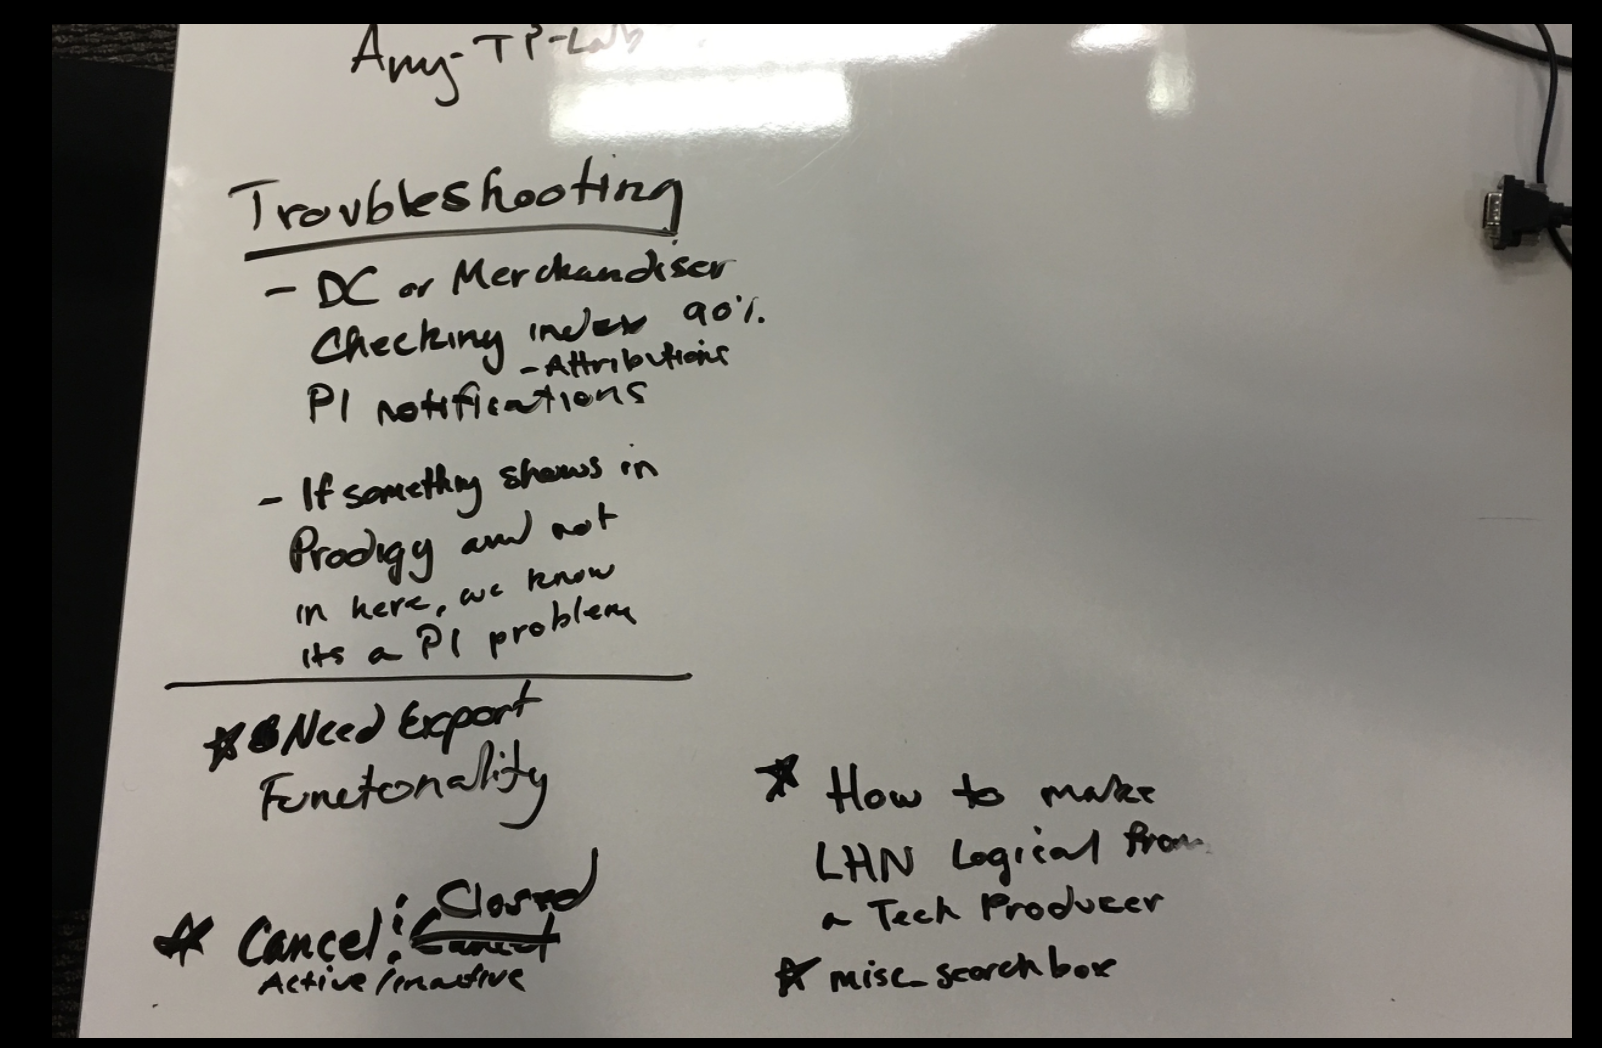 Amy-TP-Lab
Troubleshooting
- DC or Merchandiser
Checking index 90%
- Attributions
PI notifications
- If something shows in
Prodigy and not
in here, we know
its a PI problem
* Need Export
Functonality
* Cancel: Closed
Active/inactive
* How to make
LHN Logical from
a Tech Producer
* misc_searchbox